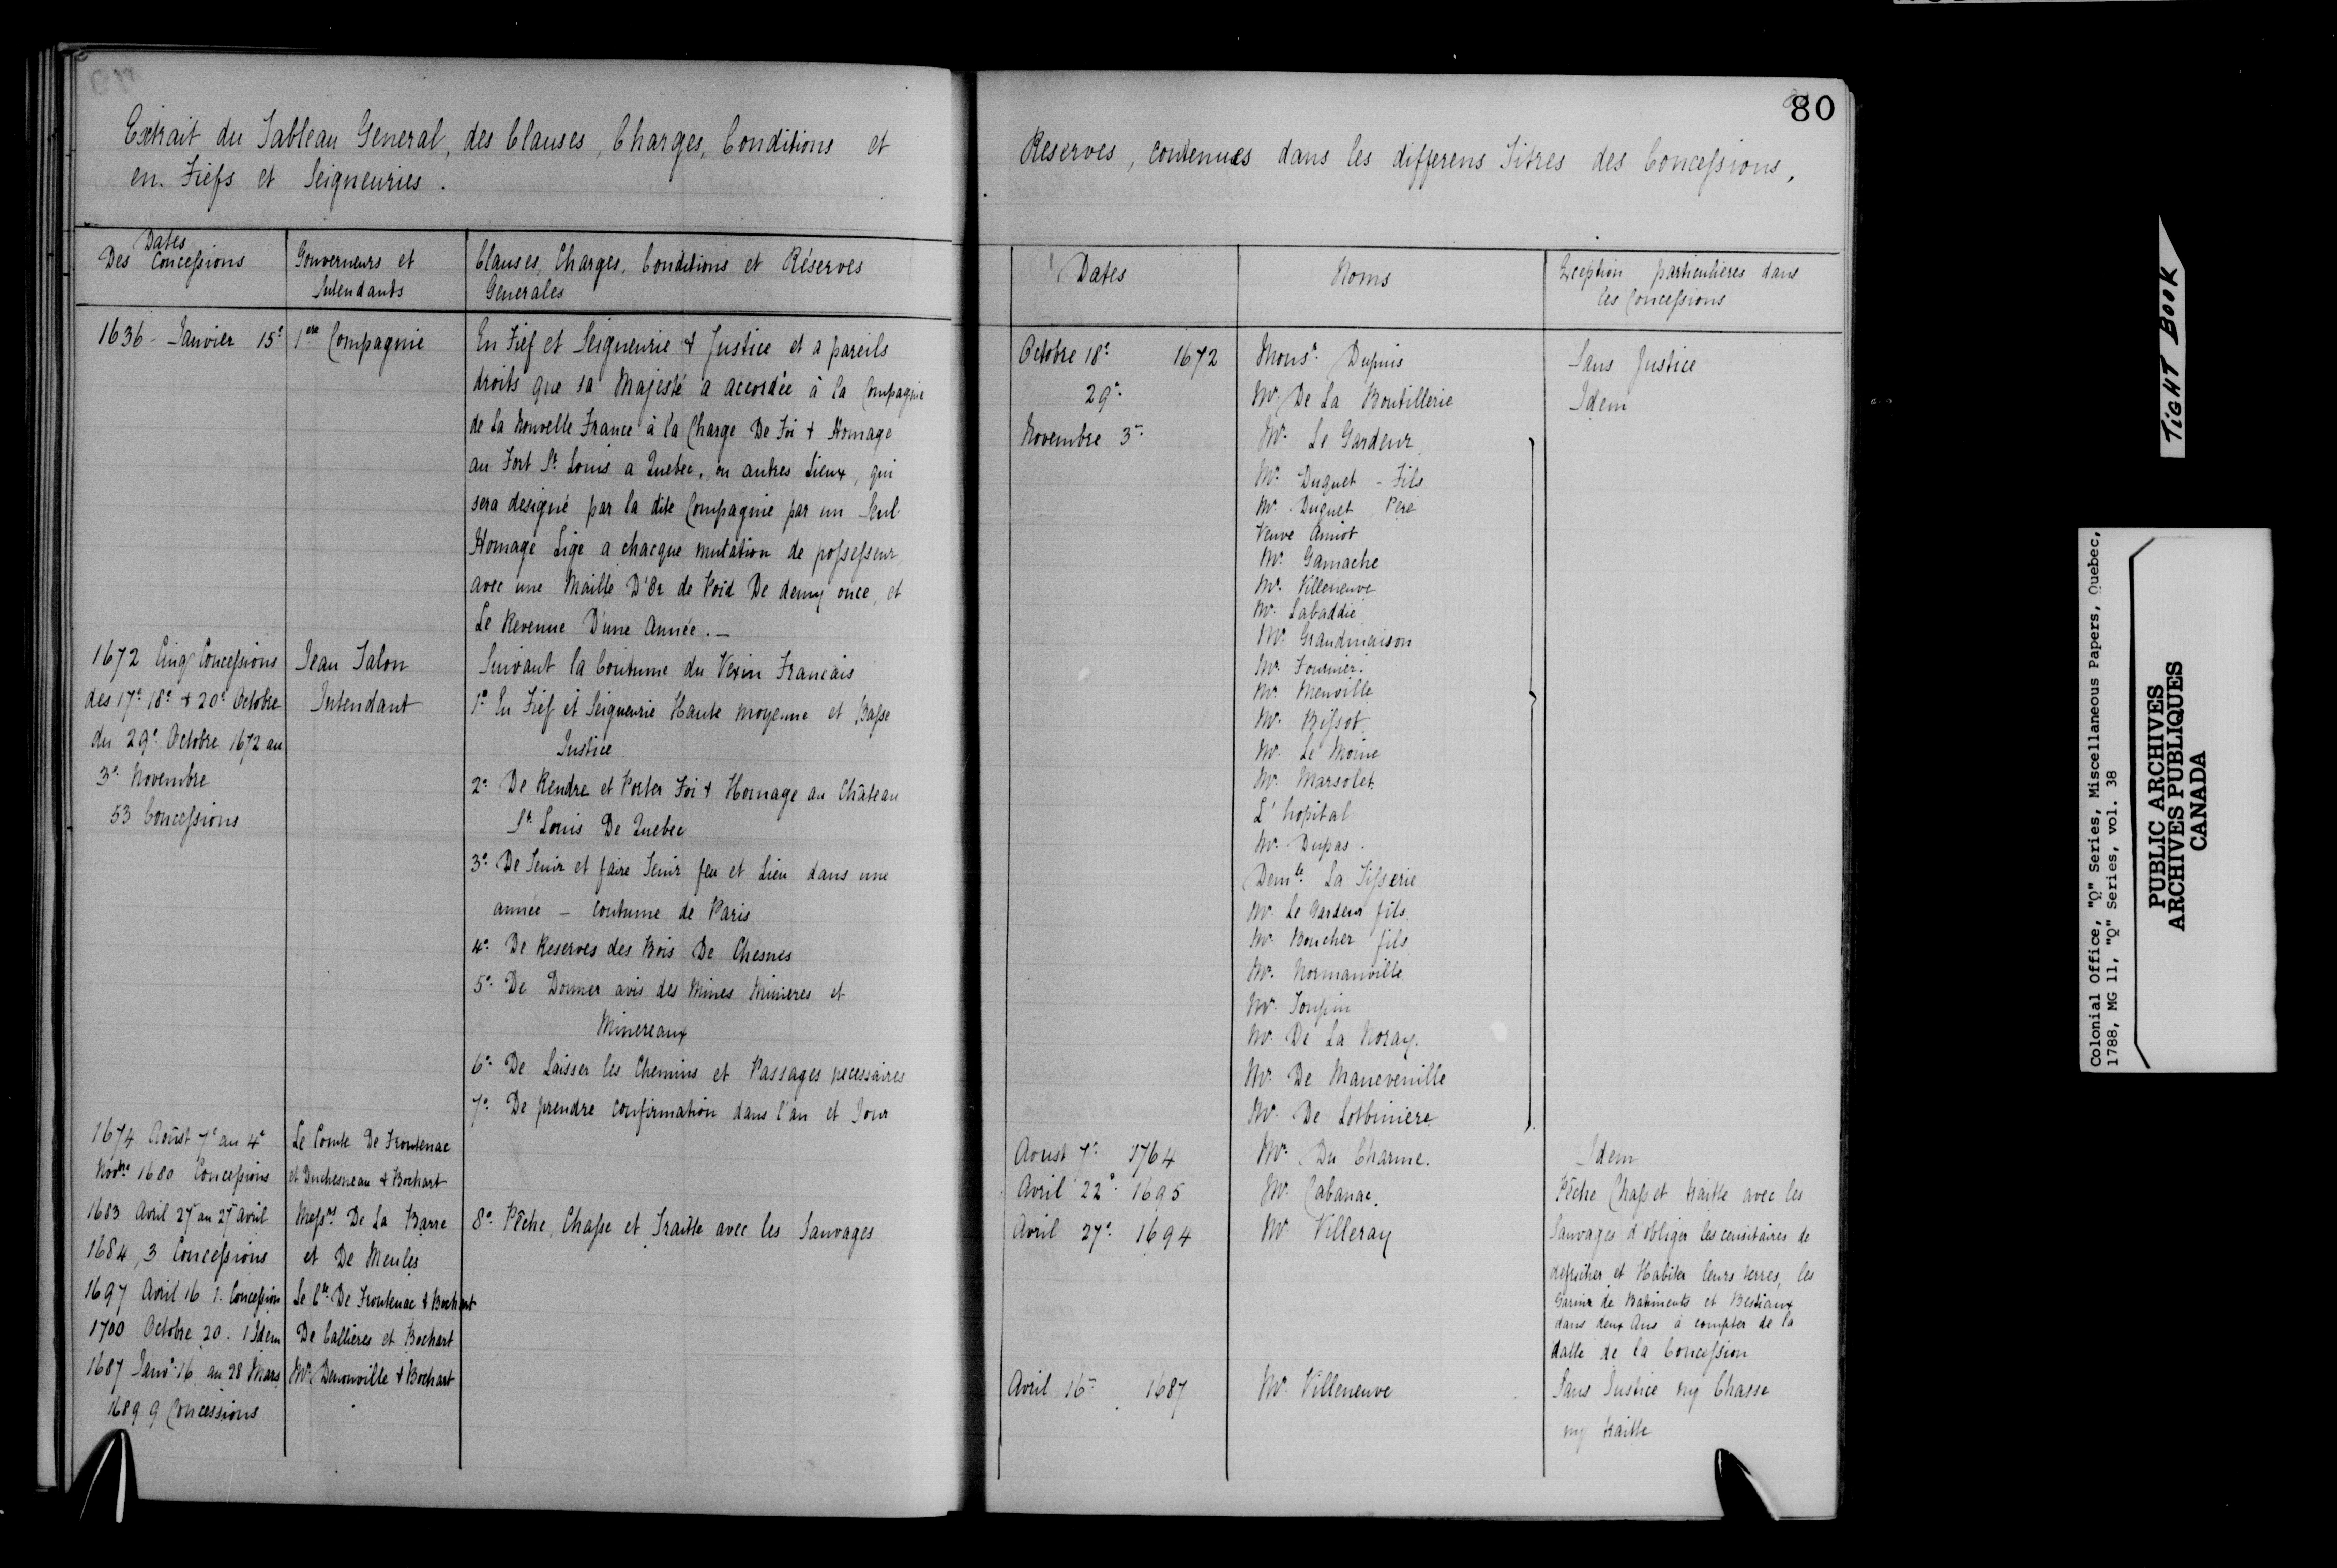 80
Extrait du Tableau General, des Clauses, Charges, Conditions et
en Fiefs et Seigneuries.
Dates
Des Concessions
Gouverneurs et
Intendants
Clauses, Charges, Conditions et Réserves
Generales
1636 - Janvier 15e
1ere Compagnie
En Fief et Seigneurie & Justice et a pareils
droits que sa Majesté a accordée à la Compagnie
de La Nouvelle France à la Charge De Foi & Homage
au Fort St Louis a Quebec, ou autres Lieux, qui
sera designé par la dite Compagnie par un Seul
Homage Lige a chacque mutation de possesseur
avec une Maille D'Or de Poid De demy once, et
Le Revenue D'une Année. —
1672 Cinq Concessions
des 17e 18e & 20e Octobre
du 29e Octobre 1672 au
3e Novembre
53 Concessions
Jean Talon
Intendant
Suivant la Coutume du Vexin Francais
1e En Fief et Seigneurie Haute moyenne et Basse
Justice
2e De Rendre et Porter Foi & Homage au Château
St Louis De Quebec
3e De Tenir et faire Tenir feu et Lieu dans une
année — Coutume de Paris
4e De Reserves des Bois De Chesnes
5e De Donner avis des Mines Minieres et
Minereaux
6e De Laisser les Chemins et Passages necessaires
7e De prendre Confirmation dans l'an et Jour
1674 Aoûst 7e au 4e
Novbre 1680 Concessions
Le Comte De Frontenac
et Duchesneau & Bochart
1683 Avril 27 au 27 Avril
1684, 3 Concessions
Messrs De La Barre
et De Meules
8e Pêche, Chasse et Traitte avec les Sauvages
1697 Avril 16 1. Concession
Le Cte De Frontenac & Bochart
1700 Octobre 20. 1 Idem
De Callieres et Bochart
1687 Janvr 16 au 28 Mars
1689 9 Concessions
Mr Denonville & Bochart
Reserves, contenues dans les differens Titres des Concessions,
Dates
Noms
Exception particulieres dans
les Concessions
Octobre 18e 1672
Monsr Dupuis
Sans Justice
29e
Mr De La Boutillerie
Idem
Novembre 3e
Mr Le Gardeur
Mr Duquet - Fils
Mr Duquet Pere
Veuve Amiot
Mr Gamache
Mr Villeneuve
Mr Labaddie
Mr Grandmaison
Mr Fournier
Mr Menville
Mr Bissot
Mr Le Moine
Mr Marsolet
L'hopital
Mr Dupas
Demlle La Tisserie
Mr Le Gardeur fils
Mr Boucher fils
Mr Normanville
Mr Toupin
Mr De La Noray
Mr De Manevenille
Mr De Lotbiniere
Aoust 7e 1764
Mr Du Charme.
Idem
Avril 22e 1695
Mr Cabanac.
Pêche Chass et traitte avec les
Avril 27e 1694
Mr Villeray
Sauvages d'obliger les censitaires de
defricher et Habiter leurs terres, les
Garnir de Batiments et Bestiaux
dans deux Ans à compter de la
datte de la Concession
Avril 16 1687
Mr Villeneuve
Sans Justice ny Chasse
ny traitte
TIGHT BOOK
Colonial Office, "Q" Series, Miscellaneous Papers, Quebec,
1788, MG 11, "Q" Series, vol. 38
PUBLIC ARCHIVES
ARCHIVES PUBLIQUES
CANADA